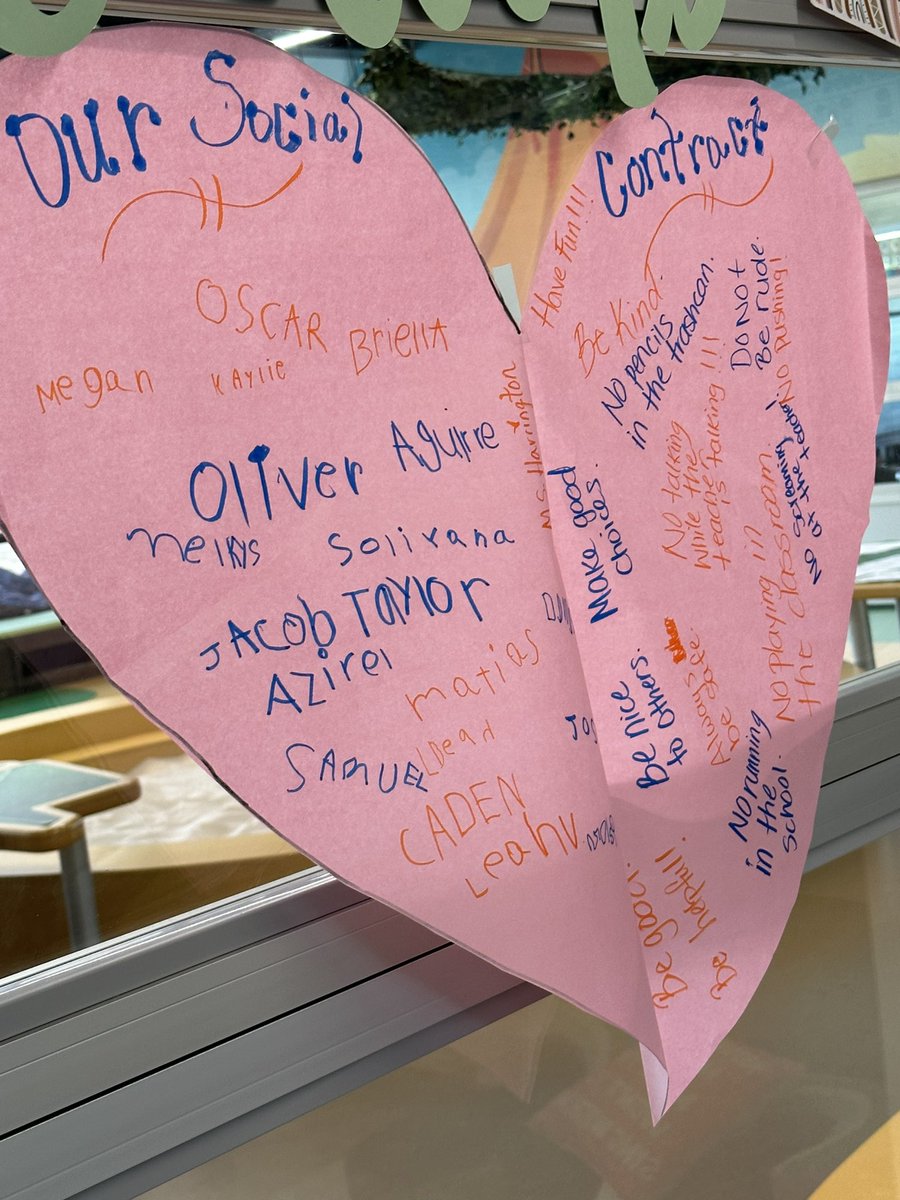 Our Social
Contract
OSCAR
Briella
Megan
Kaylie
Oliver
Aguirre
Nelkys
Solivana
JACOB TAYLOR
Azirel
matias
SAMUEL
CADEN
Leahv
Ms. Harrington
Have Fun!!!
Be Kind.
No pencils
in the trashcan.
Do Not
Be rude.
No pushing!
No talking
while the
teacher talking
is talking !!!
No screaming
at the teacher!
Make good
choices.
No playing in
the classroom.
Be nice
to others.
Always
be safe.
No running
in the
school.
Be good.
Be helpful!